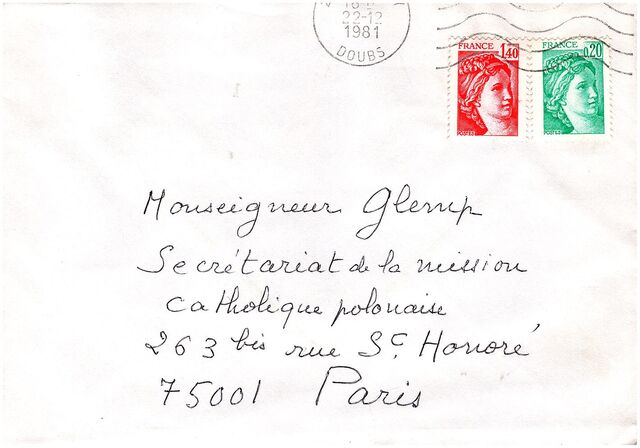 22-12
1981
DOUBS
FRANCE 1,40
FRANCE 0,20
Monseigneur Glemp
Secrétariat de la mission
catholique polonaise
263 bis rue St Honoré
75001 Paris